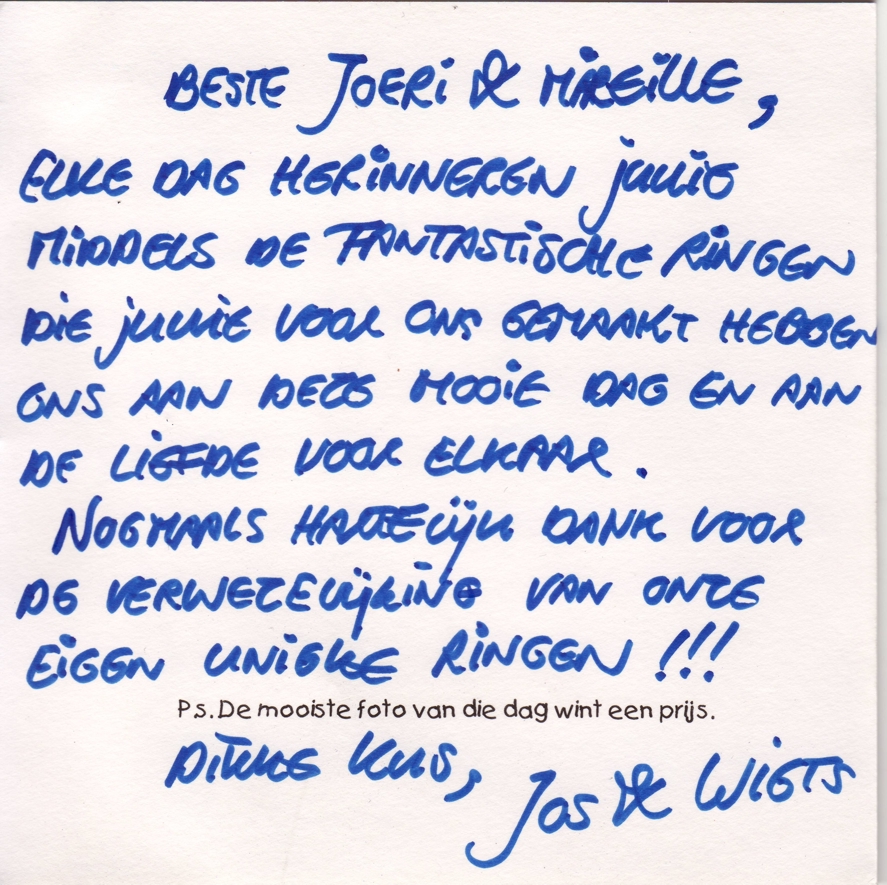 BESTE JOERI & MIREILLE,
ELKE DAG HERINNEREN JULLIE
MIDDELS DE FANTASTISCHE RINGEN
DIE JULLIE VOOR ONS GEMAAKT HEBBEN
ONS AAN DEZE MOOIE DAG EN AAN
DE LIEFDE VOOR ELKAAR.
NOGMAALS HARTELIJK DANK VOOR
DE VERWEZELIJKING VAN ONZE
EIGEN UNIEKE RINGEN!!!
Ps. De mooiste foto van die dag wint een prijs.
DIKKE KUS,
JOS & WIETS